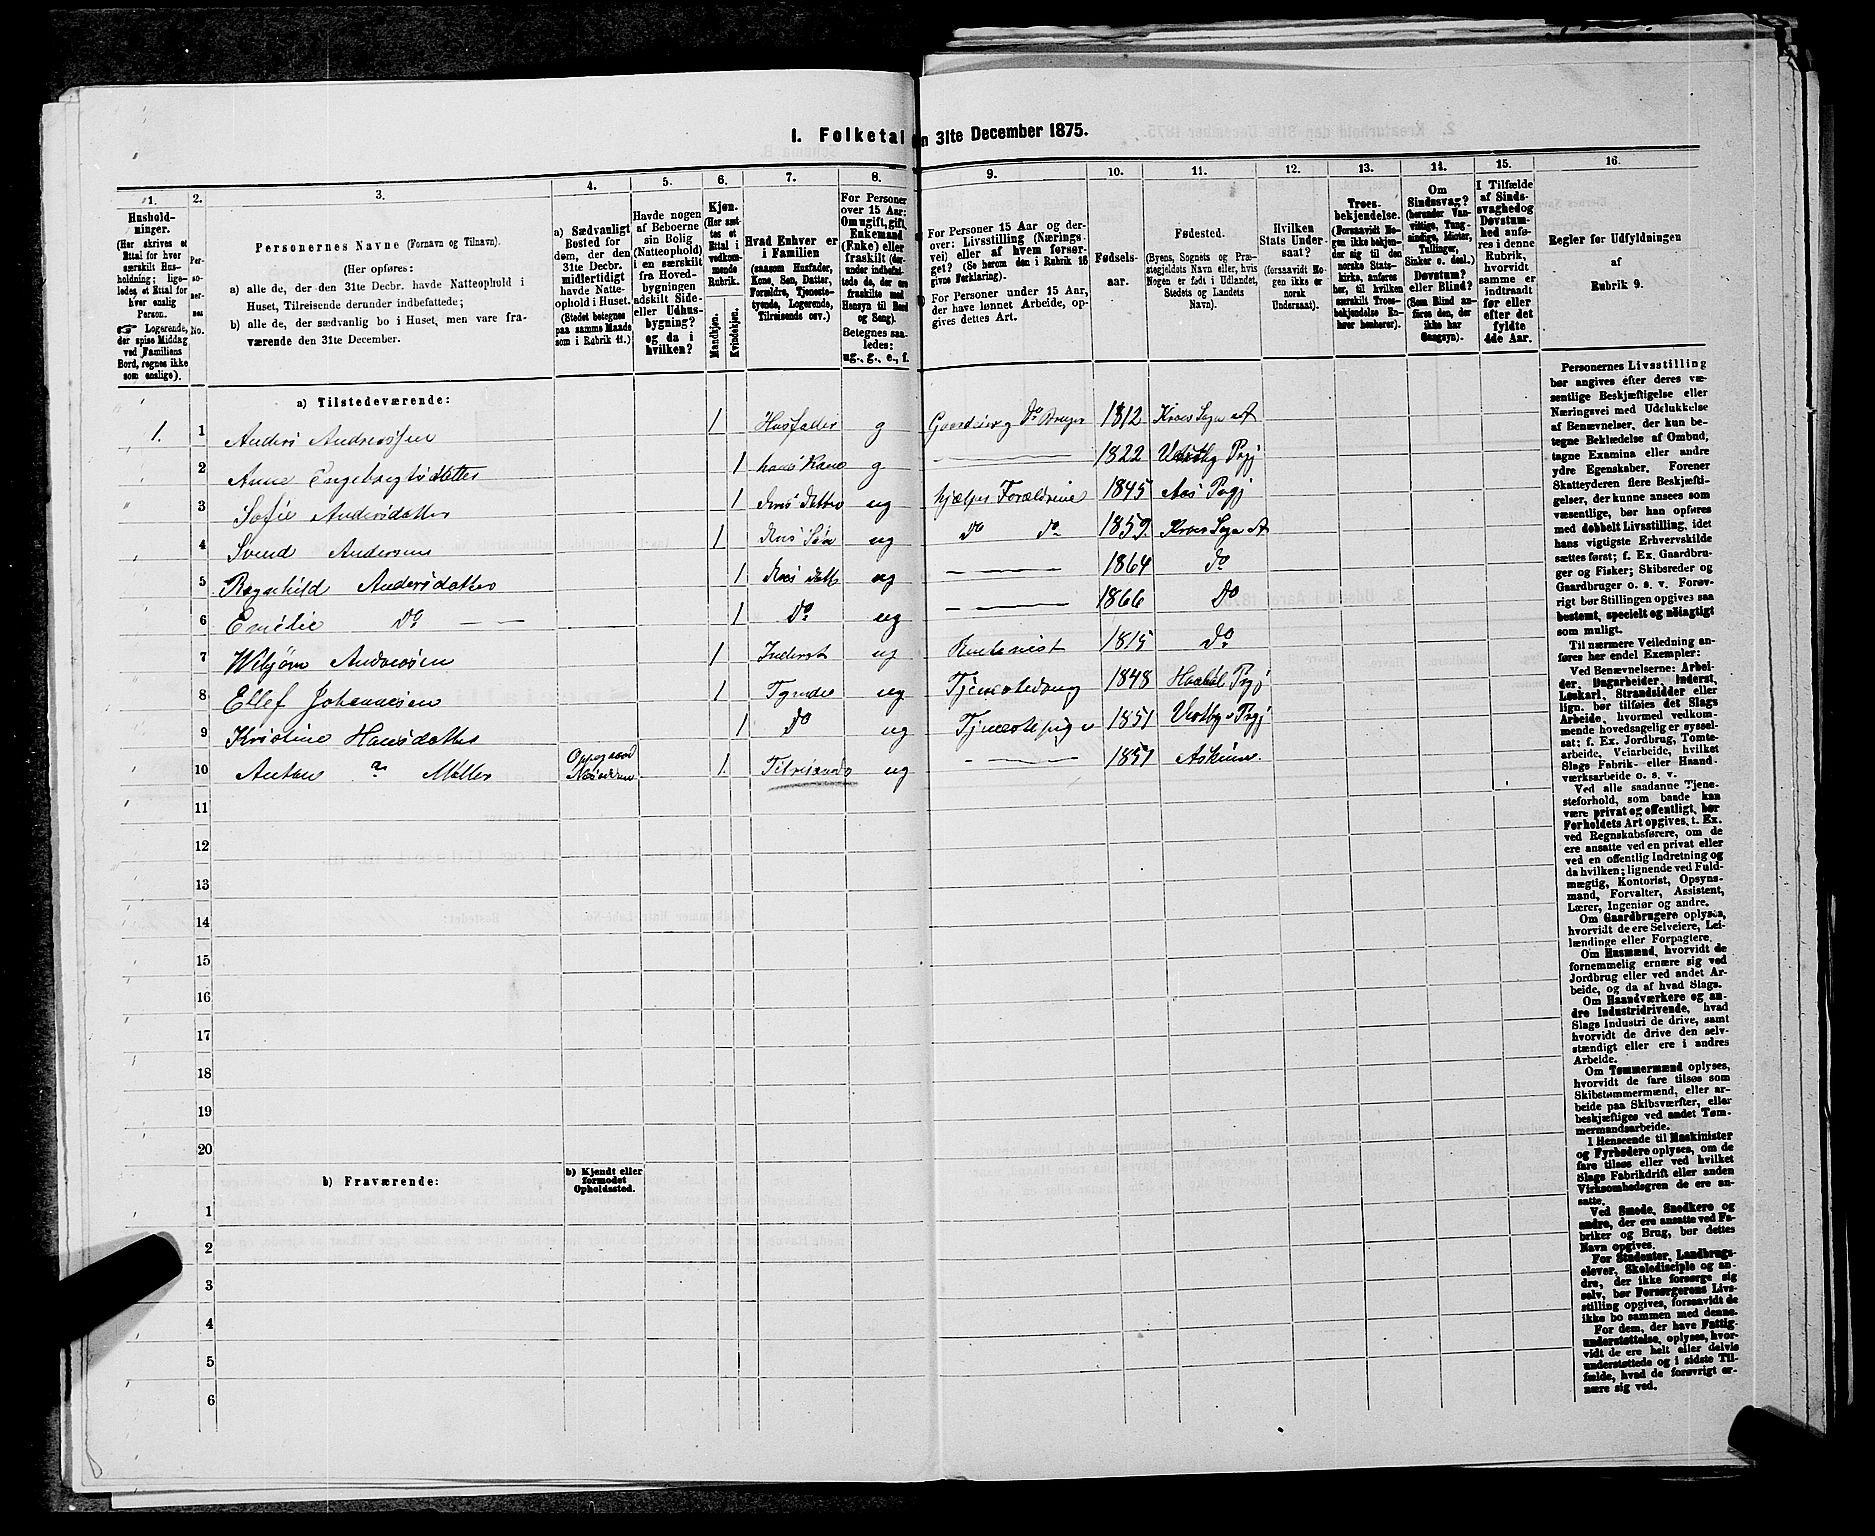 1. Folketal den 31te December 1875.
1. 2. 3. 4. 5. 6. 7. 8. 9. 10. 11. 12. 13. 14. 15. 16.
Hushold-
ninger.
(Her skrives et
Ettal for hver
særskilt Hus-
holdning; lige-
ledes et Ettal for
hver enslig
Person.
☞ Logerende,
der spise Middag
ved Familiens
Bord, regnes ikke
som enslige).
Per-
so-
ner-
nes
No.
Personernes Navne (Fornavn og Tilnavn).
(Her opføres:
a) alle de, der den 31te Decbr. havde Natteophold i
Huset, Tilreisende derunder indbefattede;
b) alle de, der sædvanlig bo i Huset, men vare fra-
værende den 31te December.
a) Sædvanligt
Bosted for
dem, der den
31te Decbr.
midlertidigt
havde Natte-
ophold i Huset.
(Stedet betegnes
paa samme Maade
som i Rubrik 11.)
Havde nogen
af Beboerne
sin Bolig
(Natteophold)
i en særskilt
fra Hoved-
bygningen
adskilt Side-
eller Udhus-
bygning?
og da i
hvilken?
Kjøn.
(Her sæt-
tes et
Ettal i
vedkom-
mende
Rubrik.
Mandkjøn.
Kvindekjøn.
Hvad Enhver er
i Familien
(saasom Husfader,
Kone, Søn, Datter,
Forældre, Tjeneste-
tyende, Logerende,
Tilreisende osv.)
For Personer
over 15 Aar:
Om ugift, gift,
Enkemand
(Enke) eller
fraskilt (der-
under indbefat-
tede de, der ere
fraskilte med
Hensyn til Bord
og Seng).
Betegnes saa-
ledes:
ug., g., e., f.
For Personer 15 Aar og der-
over: Livsstilling (Nærings-
vei) eller af hvem forsør-
get? (Se herom den i Rubrik 16
givne Forklaring).
For Personer under 15 Aar,
der have lønnet Arbeide, op-
gives dettes Art.
Fødsels-
aar.
Fødested.
(Byens, Sognets og Præ-
stegjeldets Navn eller, hvis
Nogen er født i Udlandet,
Stedets og Landets
Navn).
Hvilken
Stats Under-
saat?
(forsaavidt No-
gen ikke er
norsk
Undersaat).
Troes-
bekjendelse.
(Forsaavidt No-
gen ikke bekjen-
der sig til den
norske Stats-
kirke, anføres
her, til hvilken
særskilt Troes-
bekjendelse En-
hver henhører).
Om
Sindssvag?
(herunder Van-
vittige, Tung-
sindige, Idioter,
Tullinger,
Sinker o. desl.)
Døvstum?
eller Blind?
(Som Blind an-
føres den, der
ikke har
Gangsyn).
I Tilfælde
af Sinds-
svaghed og
Døvstum-
hed anfø-
res i denne
Rubrik,
hvorvidt
samme er
indtraadt
før eller
efter det
fyldte
4de Aar.
Regler for Udfyldningen
af
Rubrik 9.
a) Tilstedeværende:
1. 1 Anders Andersen 1 Husfader g Gaardeier og Do Bruger 1812 Kroer Sogn A
2 Anne Engebregtsdatter 1 hans Kone g 1822 Vestby Prgj
3 Sofie Andersdatter 1 deres Datter ug hjælper Forældrene 1845 Aas Prgj
4 Svend Andersen 1 deres Søn ug Do Do 1859. Kroer Sogn A
5 Ragnhild Andersdatter 1 deres Datt ug 1864 Do
6 Emelie Do 1 Do ug 1866 Do
7 Andersen 1 Inderst ug 1815 Do
8 Ellef Johannesen 1 Tyende ug Tjenestedreng 1848 Haabøl Prgj
9 Kristine Hansdatter 1 Do ug Tjenestepige 1851 Vestby Prgj
10 Anton Møller Oppegaard Næsodden 1 Tilreisende ug 1851 Askim.
11
12
13
14
15
16
17
18
19
20
b) Fraværende:
b) Kjendt eller
formodet
Opholdssted.
1
2
3
4
5
6
Personernes Livsstilling
bør angives efter deres væ-
sentlige Beskjæftigelse eller
Næringsvei med Udelukkelse
af Benævnelser, der kun be-
tegne Beklædelse af Ombud,
tagne Examina eller andre
ydre Egenskaber. Forener
Skatteyderen flere Beskjæfti-
gelser, der kunne ansees som
væsentlige, bør han opføres
med dobbelt Livsstilling, idet
hans vigtigste Erhvervskilde
sættes først; f. Ex. Gaardbru-
ger og Fisker; Skibsreder og
Gaardbruger o. s. v. Forøv-
rigt bør Stillingen opgives saa
bestemt, specielt og nöiagtigt
som muligt.
Til nærmere Veiledning an-
føres her endel Exempler:
Ved Benævnelserne: Arbei-
der, Dagarbeider, Inderst,
Løskarl, Strandsidder eller
lign. bør tilføies det Slags
Arbeide, hvormed vedkom-
mende hovedsagelig er syssel-
sat; f. Ex. Jordbrug, Tomte-
arbeide, Veiarbeide, hvilket
Slags Fabrik- eller Haand-
værksarbeide o. s. v.
Ved alle saadanne Tjene-
steforhold, som baade kan
være privat og offentligt, bør
Forholdets Art opgives, t. Ex.
ved Regnskabsførere, om de
ere ansatte ved en privat eller
ved en offentlig Indretning og
da hvilken; lignende ved Fuld-
mægtig, Kontorist, Opsyns-
mand, Forvalter, Assistent,
Lærer, Ingeniør og andre.
Om Gaardbrugere oplyses,
hvorvidt de ere Selveiere, Lei-
lændinge eller Forpagtere.
Om Husmænd, hvorvidt de
fornemmelig ernære sig ved
Jordbrug eller ved andet Ar-
beide, og da af hvad Slags.
Om Haandværkere og an-
dre Industridrivende, hvad
Slags Industri de drive, samt
hvorvidt de drive den selv-
stændigt eller ere i andres
Arbeide.
Om Tømmermænd oplyses,
hvorvidt de fare tilsøs som
Skibstømmermænd, eller ar-
beide paa Skibsværfter, eller
beskjæftiges ved andet Tøm-
mermandsarbeide.
I Henseende til Maskinister
og Fyrbødere oplyses, om de
fare tilsøs eller ved hvilket
Slags Fabrikdrift eller anden
Virksomhedsgren de ere an-
satte.
Ved Smede, Snedkere og
andre, der ere ansatte ved Fa-
briker og Brug, bør dettes
Navn opgives.
For Studenter, Landbrugs-
elever, Skoledisciple og an-
dre, der ikke forsørge sig
selv, bør Forsørgerens Livs-
stilling opgives, forsaavidt de
ikke bo sammen med denne.
For dem, der have Fattig-
understøttelse, oplyses, hvor-
vidt de ere helt eller delvis
understøttede og i sidste Til-
fælde, hvad de forøvrigt er-
nære sig ved.